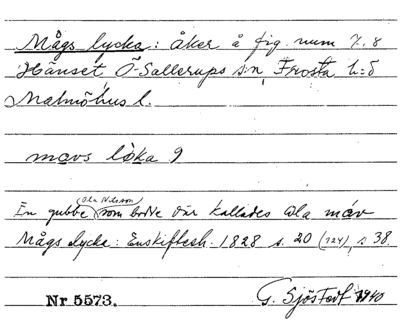 Mågs lycka: åker å fig. num 7, 8
Hänset Ö-Sallerups sn, Frosta h:d
Malmöhus l.
mavs lòka 9
En gubbe (Ola Nilsson) som bodde där kallades Ola máv
Mågs lycka: Enskiftesh. 1828 s. 20 (124), s 38.
Nr 5573.
G. Sjöstedt 1940